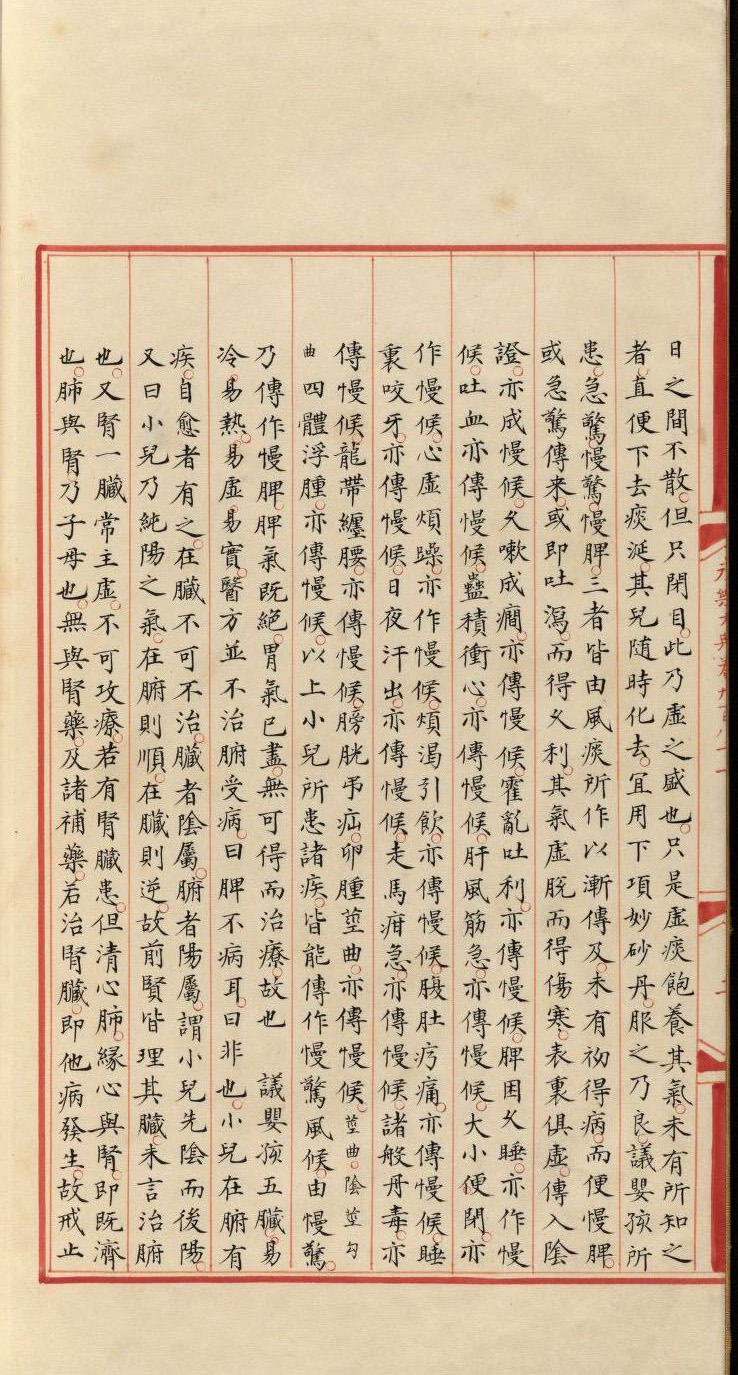 日之間不散。但只閉目。此乃虛之盛也。只是虛痰飽養其氣。未有所知之
者。直便下去痰涎。其兒随時化去。冝用下項妙砂丹。服之乃良。議嬰孩所
患。急驚慢驚。慢脾。三者皆由風痰所作以漸傳及。未有初得病。而便慢脾。
或急驚傳来。或即吐瀉。而得乆利。其氣虛脫而得傷寒。表裏俱虛。傳入陰
證。亦成慢候。乆嗽成癎。亦傳慢候。霍亂吐利。亦傳慢候。脾困乆睡。亦作慢
候。吐血亦傳慢候。蠱積衝心。亦傳慢候。肝風筋急。亦傳慢候。大小便閉。亦
作慢候。心虛煩躁。亦作慢候。煩渴引飲。亦傳慢候。腹肚疞痛。亦傳慢候。睡
裏咬牙。亦傳慢候。日夜汗出。亦傳慢候。走馬疳急。亦傳慢候。諸般丹毒。亦
傳慢候。龍帶纏腰。亦傳慢候。膀胱弔疝。卵腫莖曲。亦傳慢候。莖曲。陰莖勾
曲四體浮腫。亦傳慢候。以上小兒所患諸疾。皆能傳作慢驚風候。由慢驚。
乃傳作慢脾。脾氣既絕。胃氣已盡。無可得而治療。故也 議嬰孩五臓。易
冷。易熱。易虛。易實。醫方並不治腑受病。曰脾不病耳。曰非也。小兒在腑有
疾。自愈者有之。在臓不可不治。臓者陰屬。腑者陽屬。謂小兒先陰而後陽。
又曰小兒乃純陽之氣。在腑則順。在臓則逆。故前賢皆理其臓。未言治腑
也。又腎一臓常主虛。不可攻療。若有腎臓患。但清心肺。緣心與腎。即既濟
也。肺與腎乃子母也。無與腎藥。及諸補藥。若治腎臓。即他病發生。故戒止